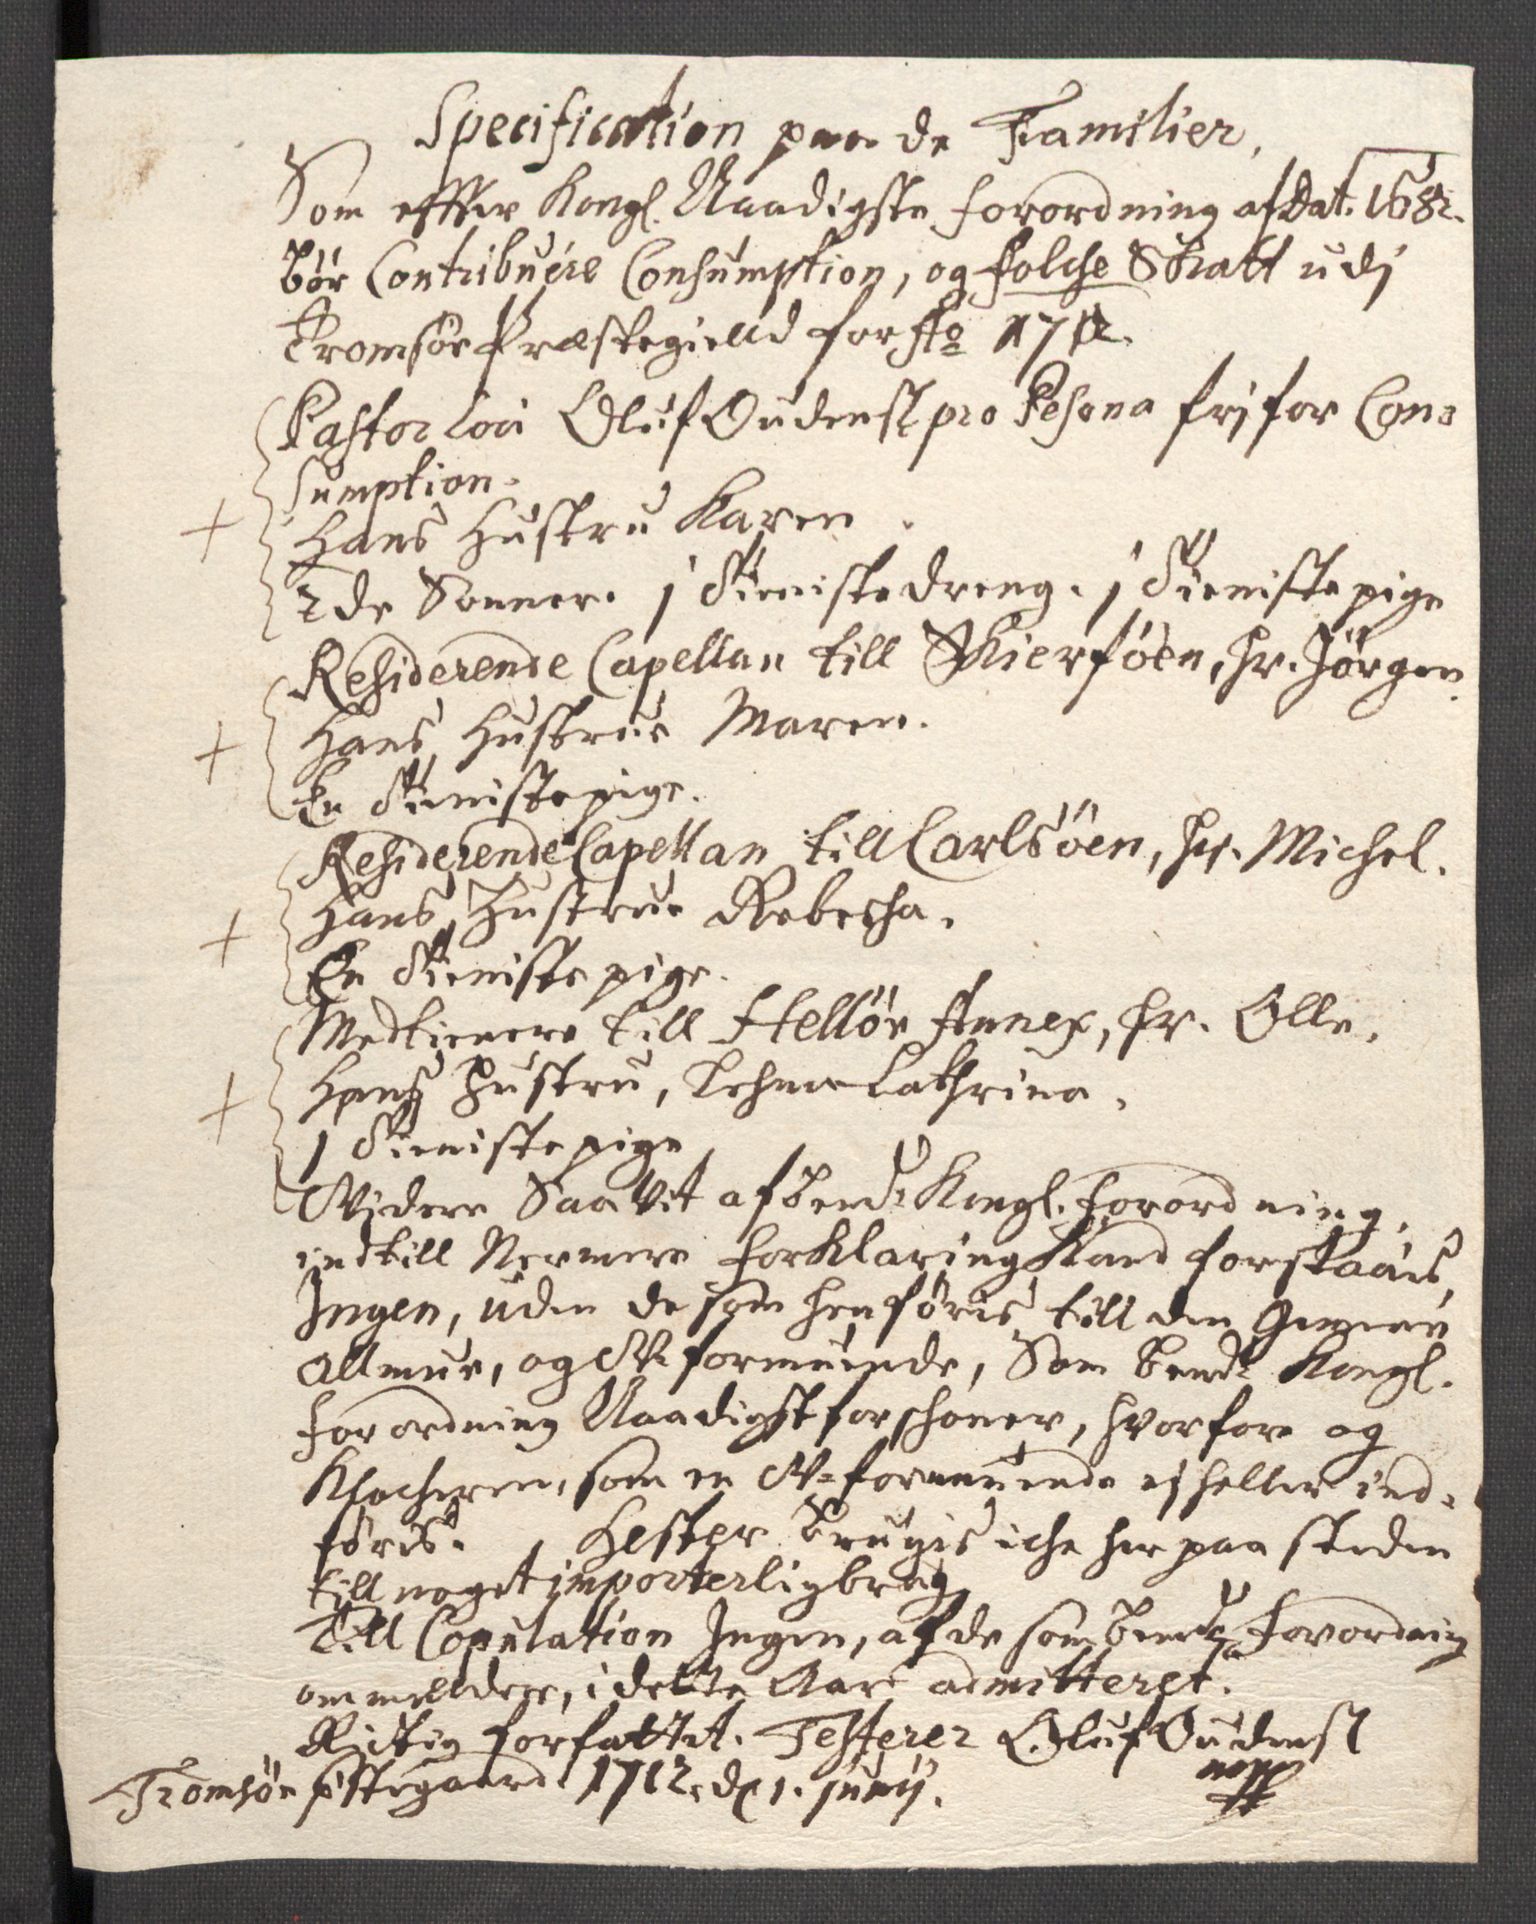 Specification paa de Familier,
Som effter Kongl. Naadigste forordning af Dat. 1682.
bør Contribuere Consumption, og folche Skatt udj
Tromsöe Præstegielld for Ao 1712.
Pastor Loci Oluf Oudensl pro Pesona frj for Con=
sumption.
Hans Hustru Karen.
2de Sønner. 1 Tienistedreng. 1 Tieniste pige
Residerende Capellan till Skierföen, Hr. Jörgen
Hans Hustrue Maren.
En Tienistepige.
Residerende Capellan till Carlsöen, Hr. Michel.
Hans Hustrue Rebecha.
En Tieniste pige.
Medtienere till Helløe Annex, Hr. Olle.
Hans Hustru, Cathrina.
1 Tieniste pige
Widere Saa vit af bemte Kongl. forordning,
indtill Nermere forklaring kand forstaaes,
Ingen, uden de som henføris till den Gemene
Allmue, og Uformuende, Som bemte Kongl.
forordning Naadigst forschoner, hvorfore og
Klocheren, som en U=formuende ej heller ind=
føris. Hester brugis iche her paa steden
till noget importerlig brug
Till Copulation Ingen, af de som bemte forordning
ommelder, i dette Aar admitteret.
Rictig forfattet. Testerer Oluf Oudensl
Tromsöe pstegaard 1712. d. 1. Junij. mpp